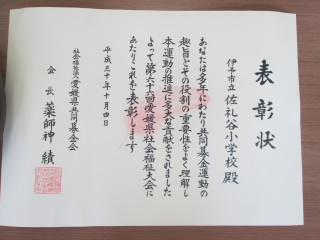 表彰状
伊予市立佐礼谷小学校殿
あなたは多年にわたり共同募金運動の
趣旨とその役割の重要性をよく理解し
本運動の推進に多大な貢献をされました
よって第六十六回愛媛県社会福祉大会に
あたりこれを表彰します
平成三十年十月四日
社会福祉法人愛媛県共同募金会
会長薬師神績